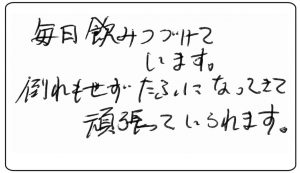 毎日飲みつづけて
います。
倒れもせずたふになってきて
頑張っていられます。